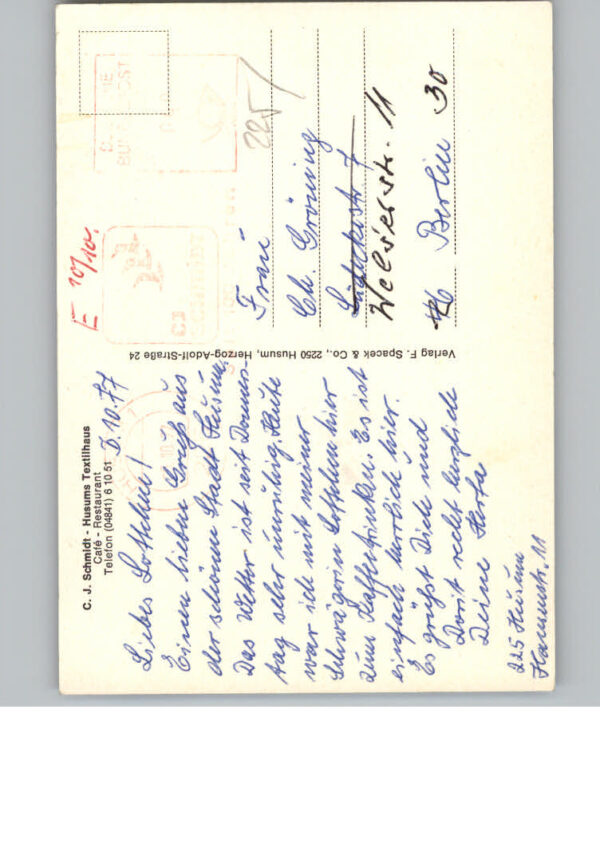 C. J. Schmidt - Husums Textilhaus
Café - Restaurant
Telefon (04841) 6 10 51
3.10.77
Liebes Lottchen!
Einen lieben Gruß aus
der schönen Stadt Husum.
Das Wetter ist seit Donners-
tag sehr unruhig. Heute
war ich mit meiner
Schwägerin Lottchen hier
zum Kaffeetrinken. Es ist
einfach herrlich hier.
Es grüßt Dich und
Dorit recht herzlich
Deine Herta
225 Husum
11
Verlag F. Spacek & Co., 2250 Husum, Herzog-Adolf-Straße 24
E 10/10.
CJ
SCHMIDT
225
Frau
Ch. Gröning
7
Welserstr. 11
Berlin 30